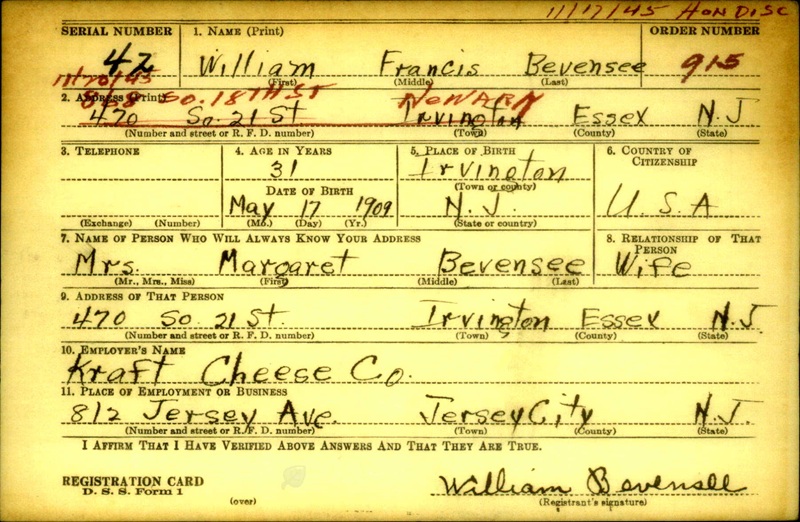 11/17/45 HON DISC
SERIAL NUMBER 1. NAME (Print) ORDER NUMBER
42 William Francis Bevensee 915
(First) (Middle) (Last)
11/20/45
2. ADDRESS (Print) So. 18TH ST NEWARK
470 So. 21 St Irvington Essex N.J
(Number and street or R. F. D. number) (Town) (County) (State)
3. TELEPHONE 4. AGE IN YEARS 5. PLACE OF BIRTH 6. COUNTRY OF CITIZENSHIP
31 Irvington
DATE OF BIRTH (Town or county)
May 17 1909 N.J. U.S.A
(Exchange) (Number) (Mo.) (Day) (Yr.) (State or country)
7. NAME OF PERSON WHO WILL ALWAYS KNOW YOUR ADDRESS 8. RELATIONSHIP OF THAT PERSON
Mrs. Margaret Bevensee Wife
(Mr., Mrs., Miss) (First) (Middle) (Last)
9. ADDRESS OF THAT PERSON
470 So. 21 St. Irvington Essex N.J.
(Number and street or R. F. D. number) (Town) (County) (State)
10. EMPLOYER'S NAME
Kraft Cheese Co.
11. PLACE OF EMPLOYMENT OR BUSINESS
812 Jersey Ave. Jersey City N.J.
(Number and street or R. F. D. number) (Town) (County) (State)
I AFFIRM THAT I HAVE VERIFIED ABOVE ANSWERS AND THAT THEY ARE TRUE.
REGISTRATION CARD
D. S. S. Form 1 William Bevensee
(over) (Registrant's signature)